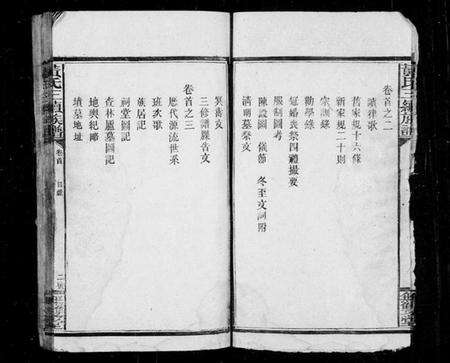 卷首之二
讀律歌
舊家規十六條
新家規二十則
家訓錄
勸學錄
冠婚喪祭四禮撮要
服制圖考
陳設圖 儀節 冬至文詞附
清明墓祭文
冥壽文
三修譜屬告文
卷首之三
歷代源流世系
班次歌
族居記
祠堂圖記
查林廬墓圖記
地輿紀略
墳墓地址
黃氏三續族譜
卷首 目錄
黃氏三續族譜